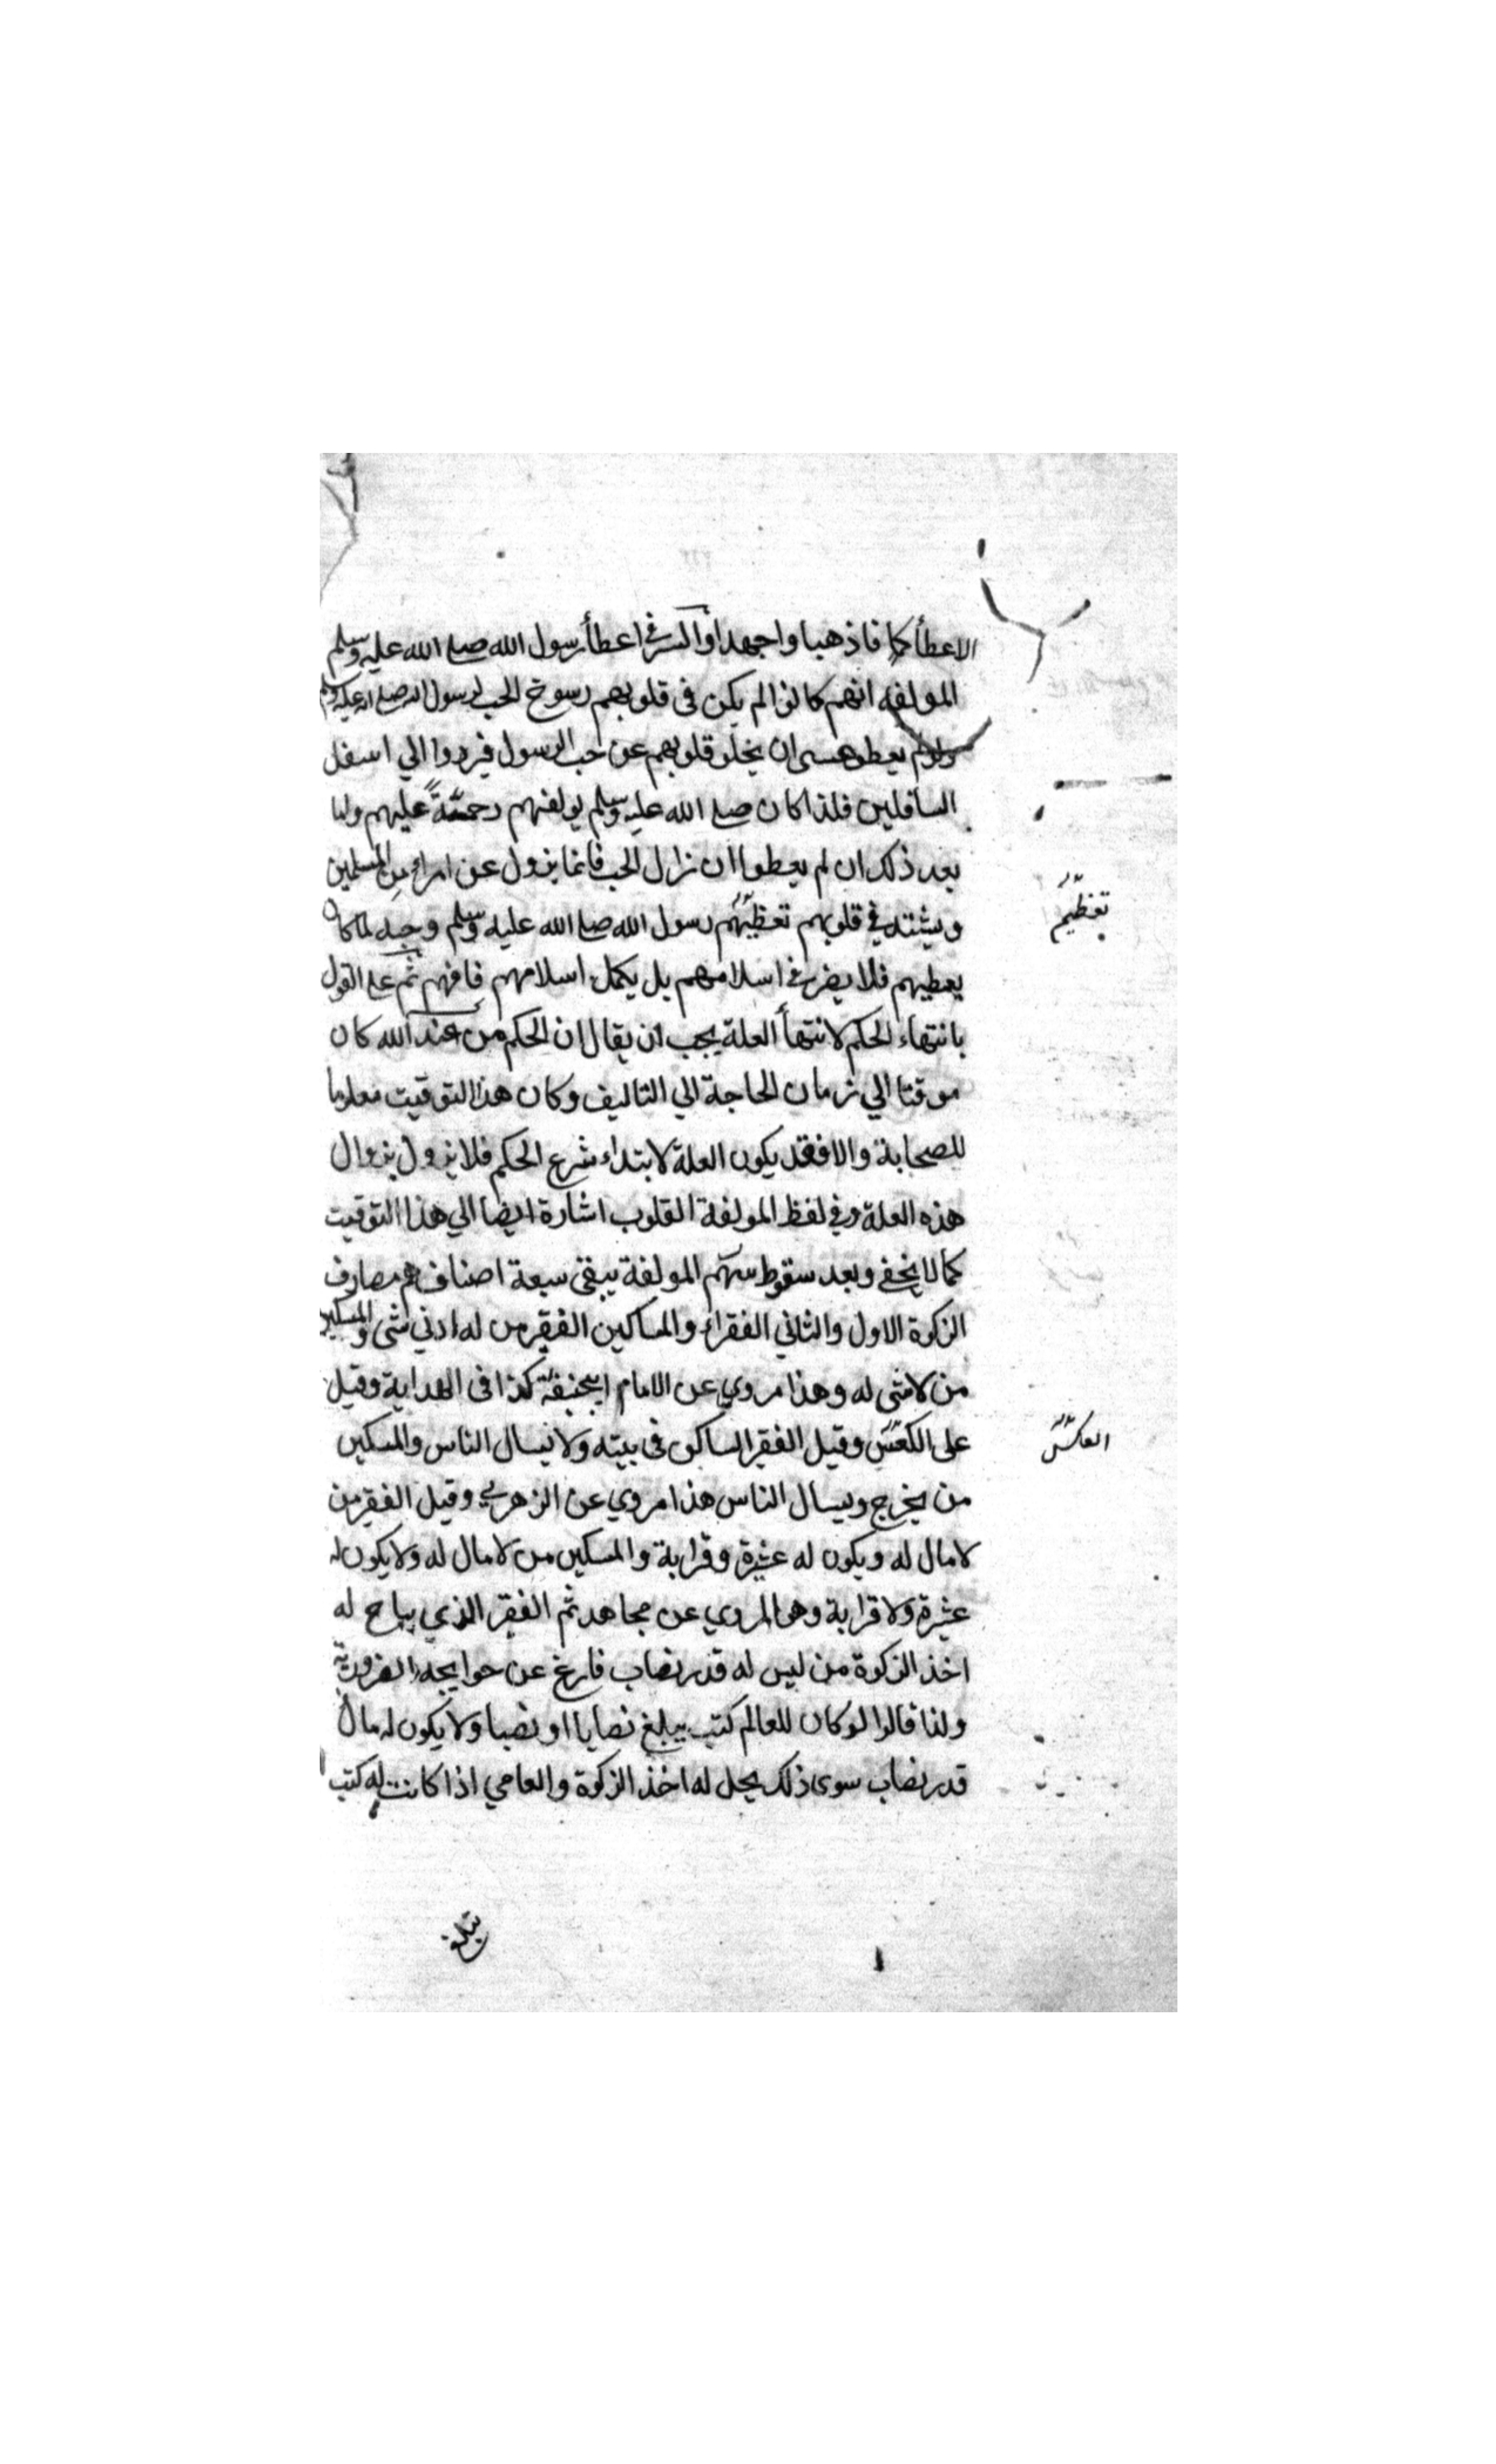 الاعطأ كما فاذهبا واجهدا والسر في اعطأ رسول الله صلع الله عليه وسلم
المولفه انهم كانوا لم يكن في قلوبهم رسوخ الحب لرسول الله صلع الله عليه وسلم
ولو لم يعطو عسى ان يخلو قلوبهم عن حب الرسول فيردوا الي اسفل
السافلين فلذا كان صلع الله عليه وسلم يولفهم رحمة عليهم ولما
بعد ذلك ان لم يعطوا ان زال الحب فانما يزول عن امراء من المسلمين
في قلوبهم تعظيم رسول الله صلع الله عليه وسلم وحبه لما كان
يعطيهم فلا يضر في اسلامهم بل يكمل اسلامهم فافهم ثم علي القول
بانتهاء الحكم لانتهأ العلة يجب ان يقال ان الحكم من عند الله كان
موقتا الي زمان الحاجة الي التاليف وكان هذا التوقيت معلوما
للصحابة والا فقد يكون العلة لابتداء شرع الحكم فلا يزول بزوال
هذه العلة وفي لفظ المولفة القلوب اشارة ايضا الي هذا التوقيت
كما لا يخفي وبعد سقوط سهم المولفة يبقي سبعة اصناف هم مصارف
الزكوة الاول والثاني الفقراء والمساكين الفقير من له ادني شي والمسكين
من لا شي له وهذا مروي عن الامام ابيحنيفة كذا في الهداية وقيل
على العكس وقيل الفقير الساكن في بيته ولا يسال الناس والمسكين
من يخرج ويسال الناس هذا مروي عن الزهري وقيل الفقير من
لا مال له ويكون له عشيرة وقرابة والمسكين من لا مال له ولا يكون له
عشيرة ولا قرابة وهو المروي عن مجاهد ثم الفقير الذي يباح له
اخذ الزكوة من ليس له قدر نصاب فارغ عن حوايجه الضرورية
ولذا قالوا لو كان للعالم كتب يبلغ نصابا او نصبا ولا يكون له مال
قدر نصاب سوى ذلك يحل له اخذ الزكوة والعامي اذا كانت له كتب
تبلغ
تعظيم
العكس